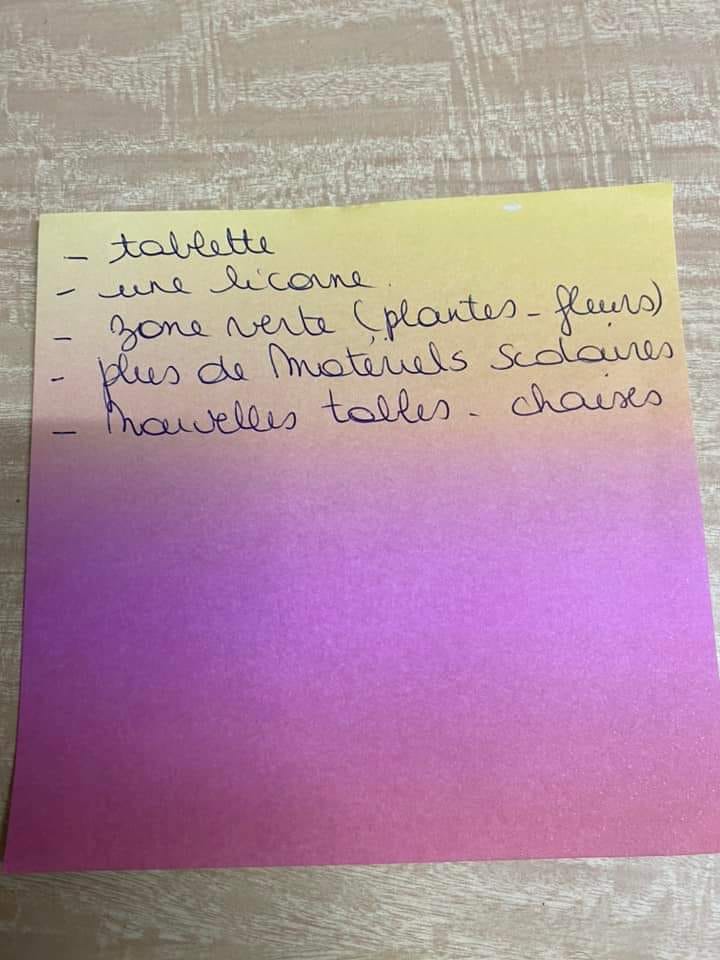 - tablette
- une licorne.
- zone verte (plantes - fleurs)
- plus de matériels scolaires
- Nouvelles tables - chaises